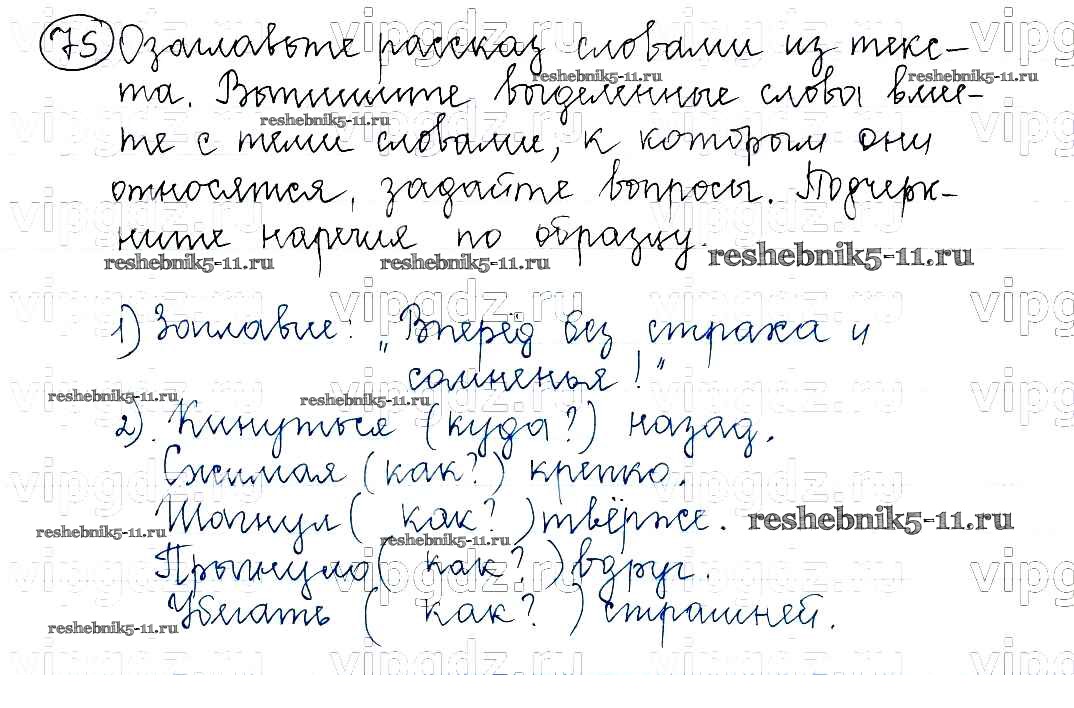 75 Озаглавьте рассказ словами из текс-
та. Выпишите выделенные слова вмес-
те с теми словами, к которым они
относятся, задайте вопросы. Подчерк-
ните наречия по образцу.
1) Заглавие: „Вперёд без страха и
сомненья!"
2). Кинуться (куда?) назад.
Сжимая (как?) крепко.
Шагнул ( как? ) твёрже.
Прыгнуло ( как? ) вдруг.
Убегать ( как? ) страшней.
reshebnik5-11.ru
vipgdz.ru